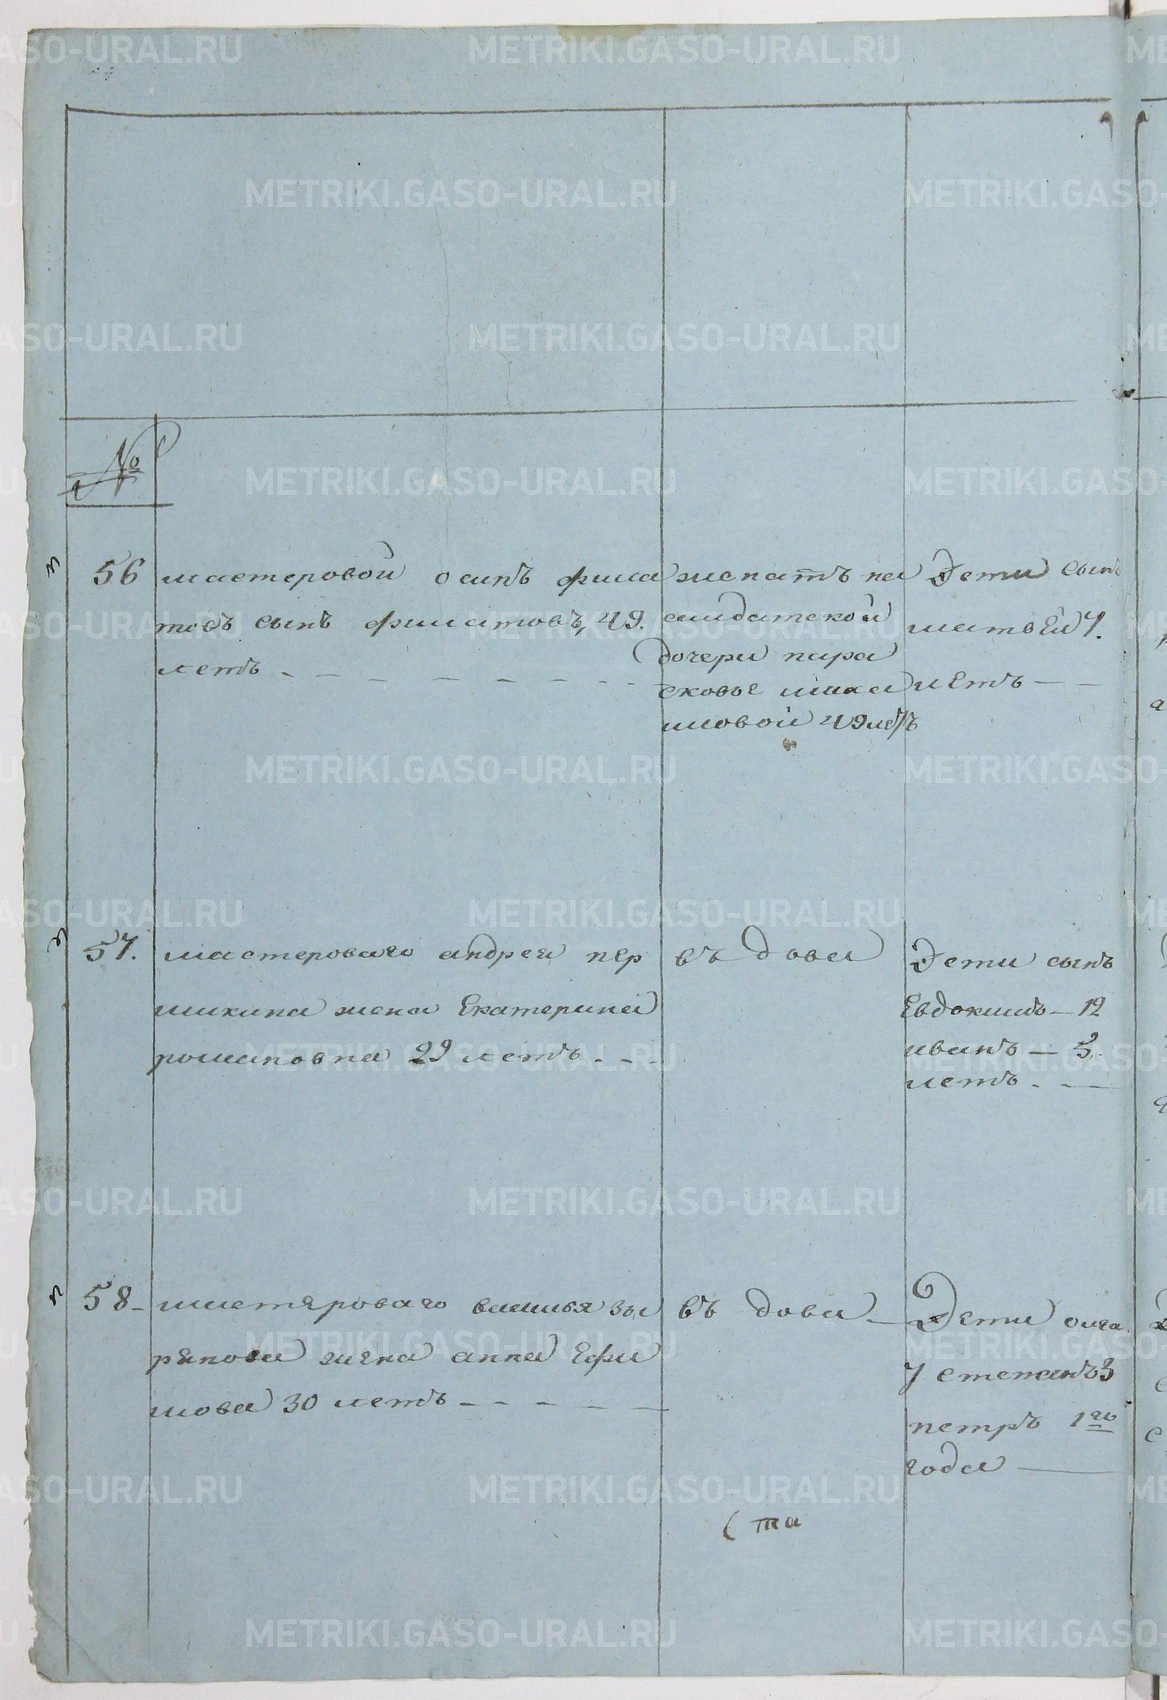 №
56 мастеровой осипъ фила
товъ сынъ филатовъ, 49.
летъ
женатъ на
салдатской
дочери пара
сковье
мовой 49 летъ
Дети сынъ
матвей 7.
летъ
57. мастероваго андрея пер
шихина жена Екатерина
романовна 29 летъ
въ дова
Дети сынъ
Евдокимъ 12
иванъ 5.
летъ
58 мастероваго васильья зы
рянова жена анна Ефи
мова 30 летъ
въ дова
Дети олга
7 степанъ 3
петръ 1го
года
METRIKI.GASO-URAL.RU